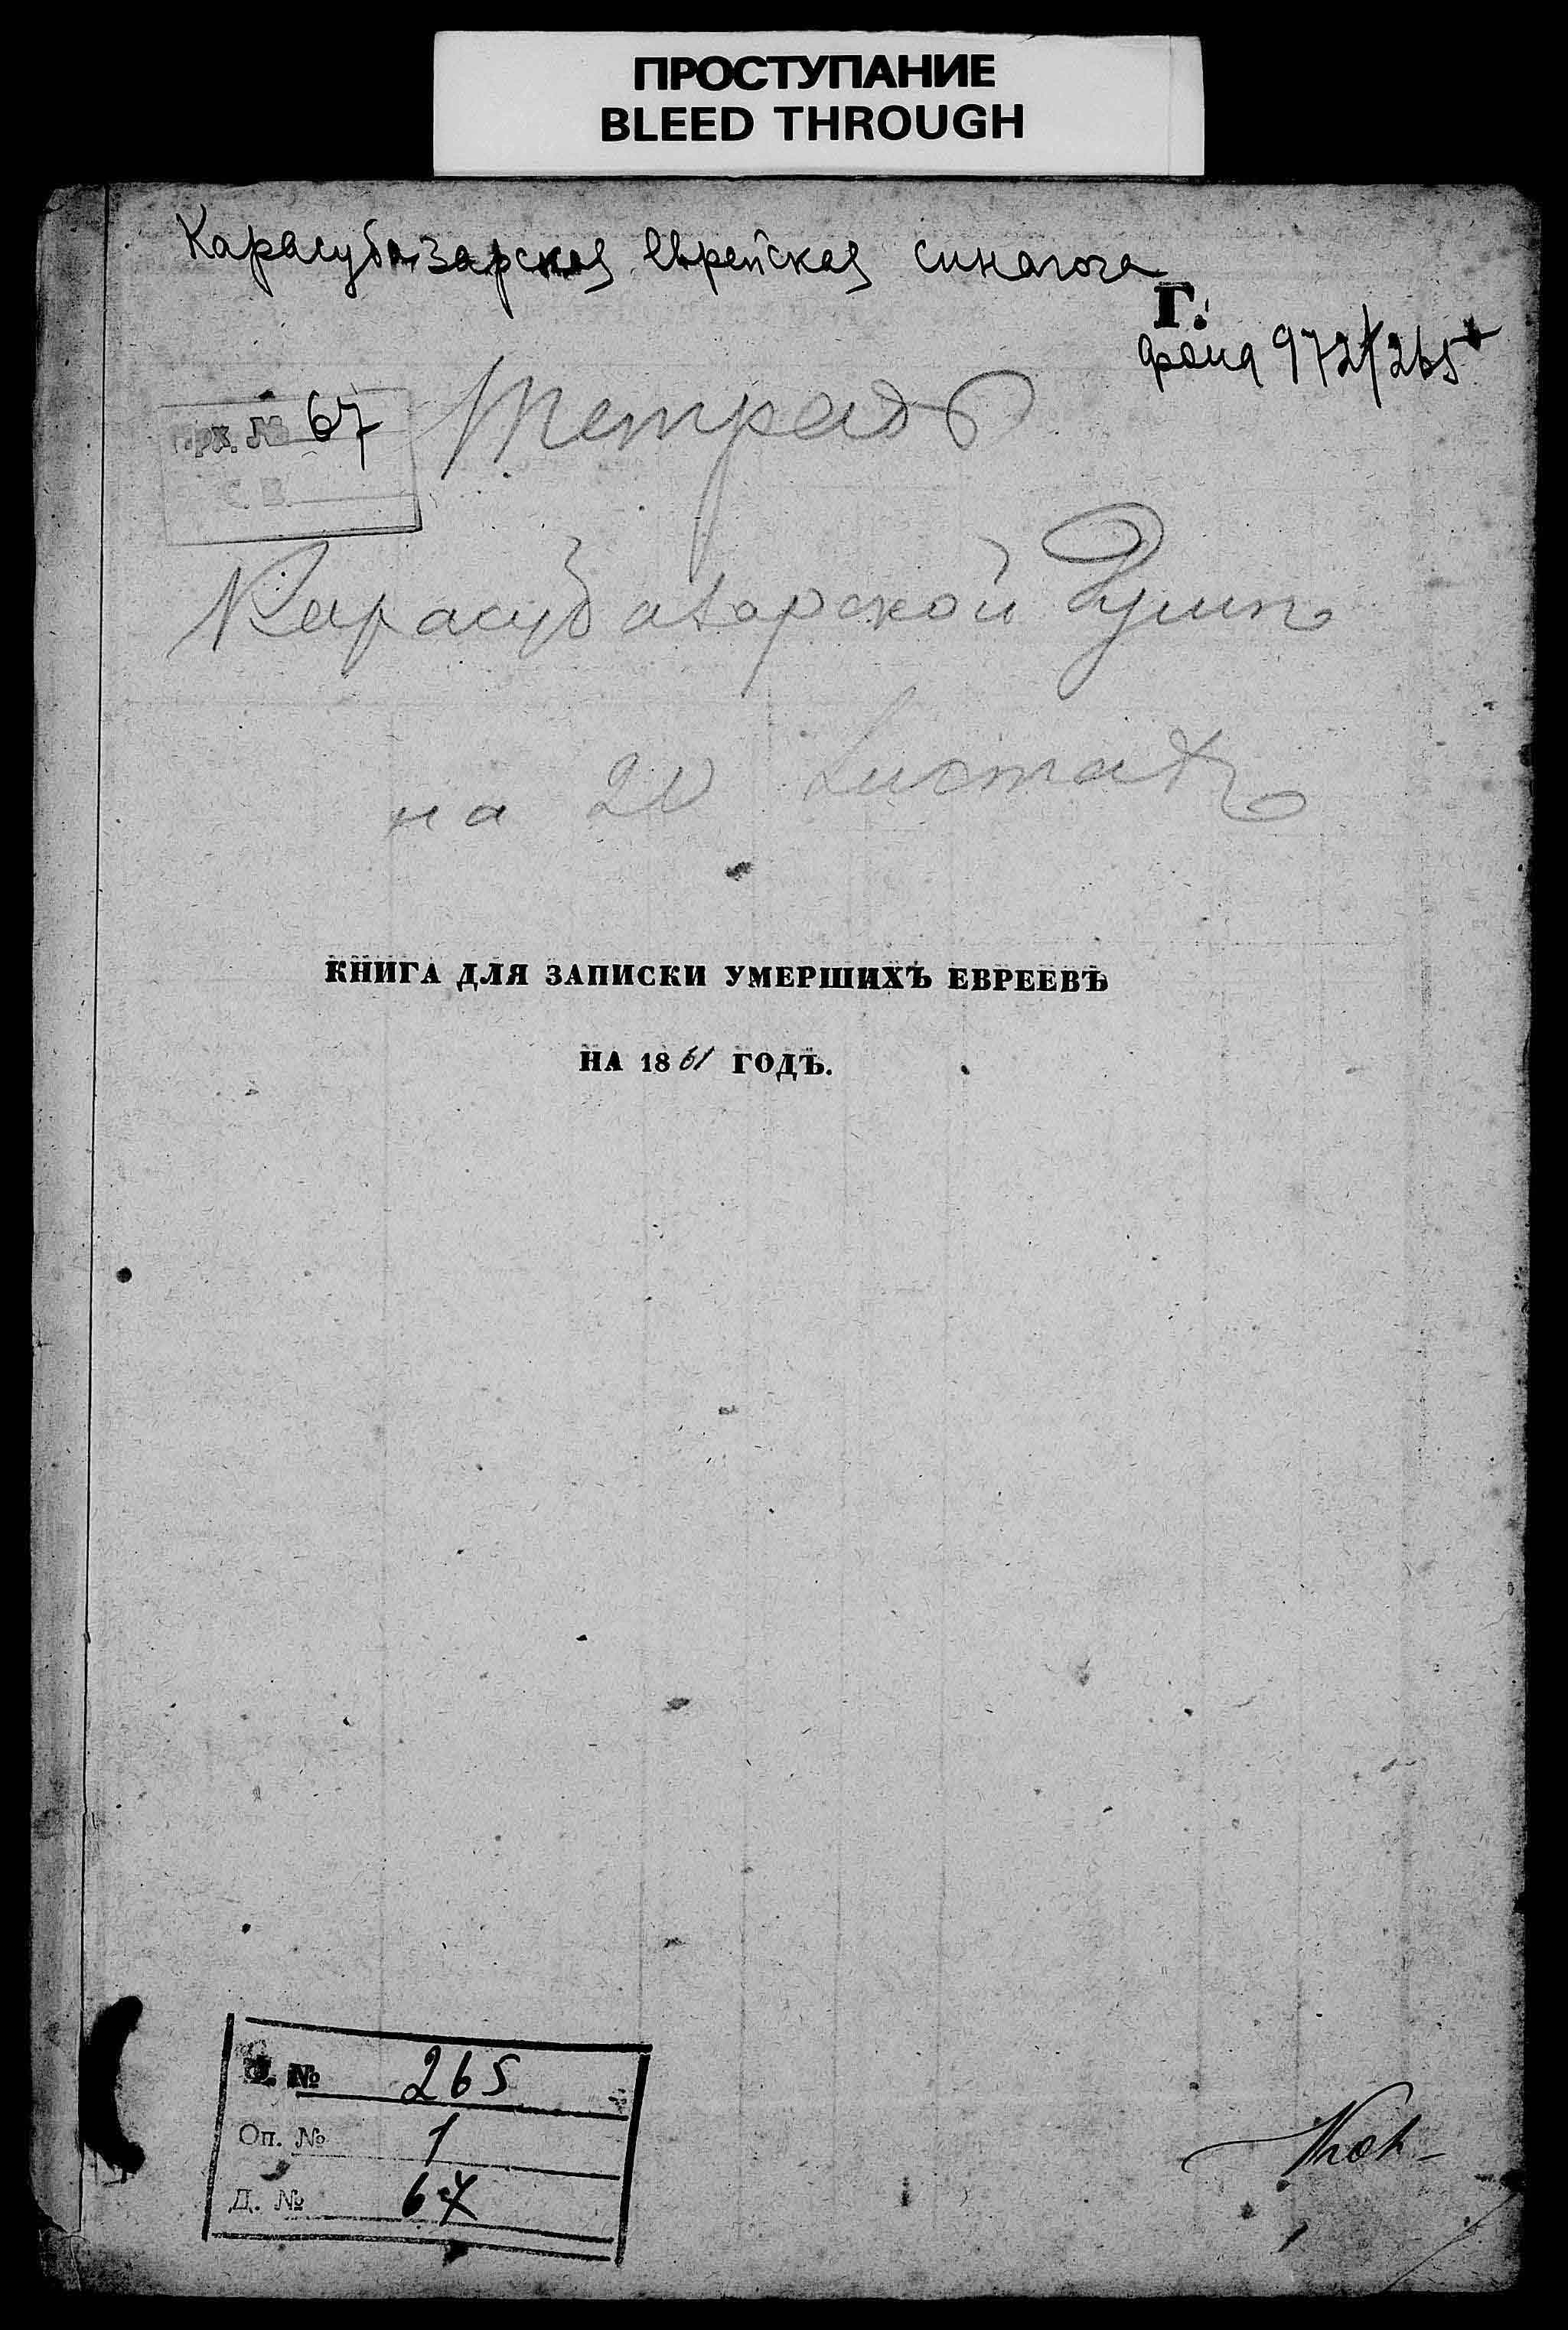 ПРОСТУПАНИЕ
BLEED THROUGH
Карасубазарская еврейская синагога
Г.
фонд 972/265
Арх. № 67
С. В.
Тетрадь
Карасубазарской Думы
на 20 листахъ
КНИГА ДЛЯ ЗАПИСКИ УМЕРШИХЪ ЕВРЕЕВЪ
НА 1861 ГОДЪ.
Ф. № 265
Оп. № 1
Д. № 67